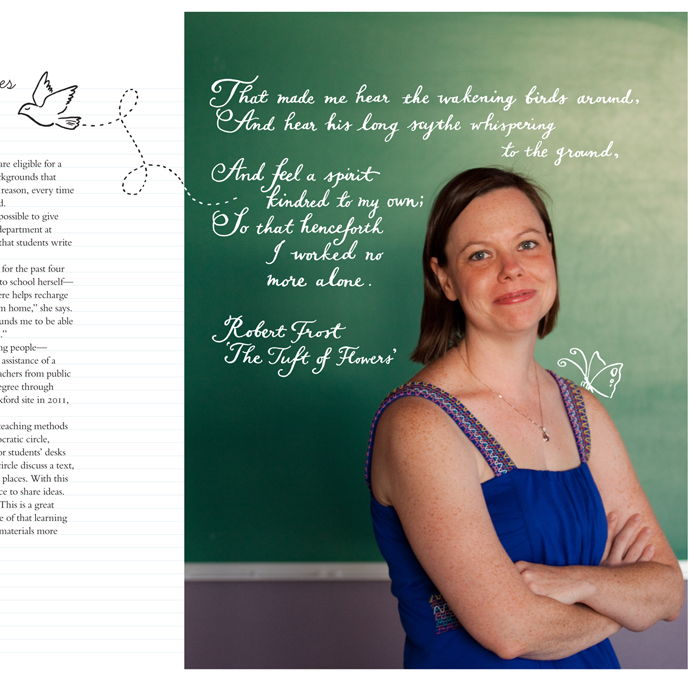 es
are eligible for a
kgrounds that
reason, every time
d.
possible to give
department at
that students write
for the past four
to school herself—
ere helps recharge
m home,” she says.
unds me to be able
.”
ng people—
assistance of a
achers from public
egree through
xford site in 2011,
teaching methods
ocratic circle,
or students’ desks
circle discuss a text,
places. With this
ce to share ideas.
This is a great
e of that learning
materials more
That made me hear the wakening birds around,
And hear his long scythe whispering
to the ground,
And feel a spirit
kindred to my own;
So that henceforth
I worked no
more alone.
Robert Frost
‘The Tuft of Flowers’